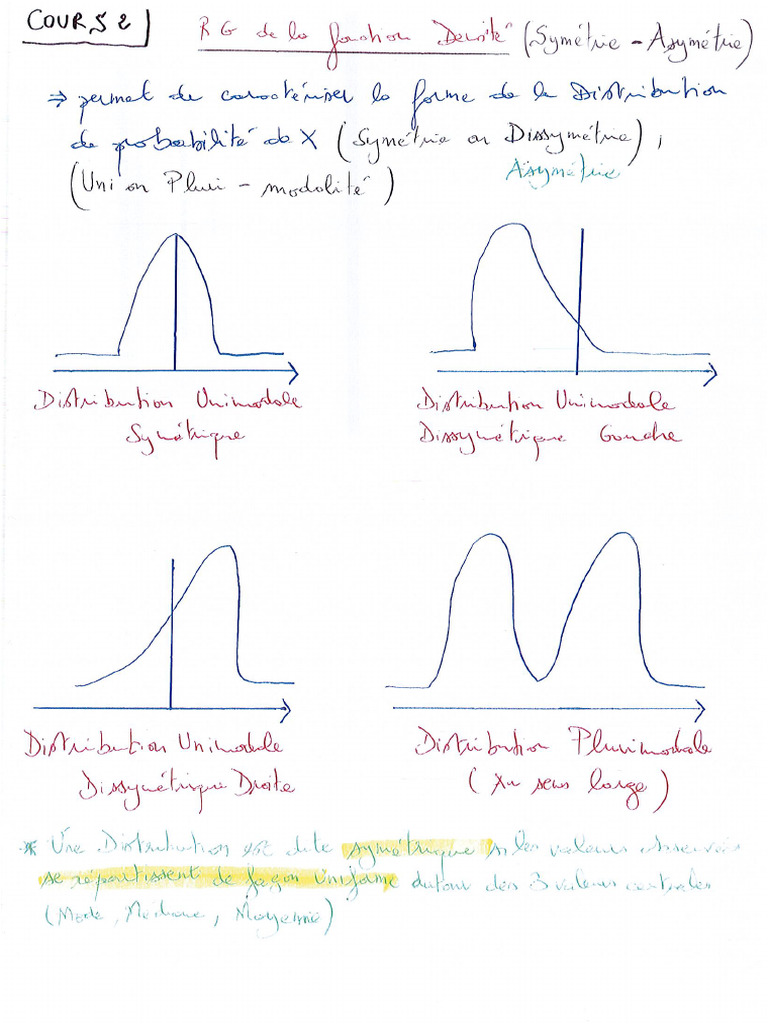 COURS 2
RG de la fonction Densité (Symétrie - Asymétrie)
⇒ permet de caractériser la forme de la Distribution
de probabilité de X (Symétrie ou Dissymétrie),
Asymétrie
(Uni ou Pluri - modalité)
Distribution Unimodale
Symétrique
Distribution Unimodale
Dissymétrique Gauche
Distribution Unimodale
Dissymétrique Droite
Distribution Plurimodale
(Au sens large)
* Une Distribution est dite symétrique si les valeurs observées
se répartissent de façon Uniforme autour des 3 valeurs centrales
(Mode, Médiane, Moyenne)